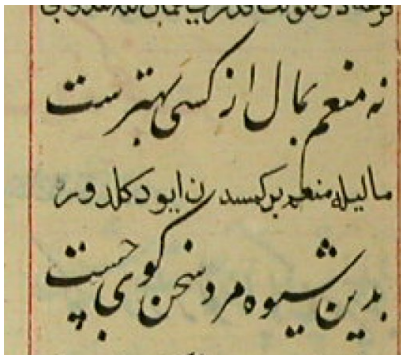 نه منعم بمال از کسی بهترست
ماليله منعم بر کمسه دن ايو دکلدور
بدین شیوه مرد سخن گوی چست